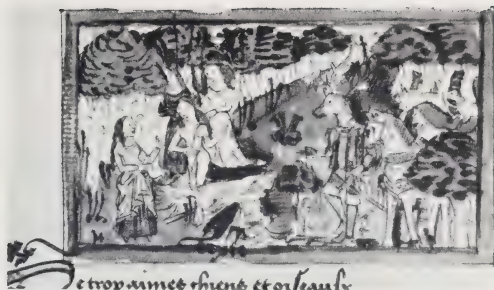 Se trop aimes chiens et oiseaulx